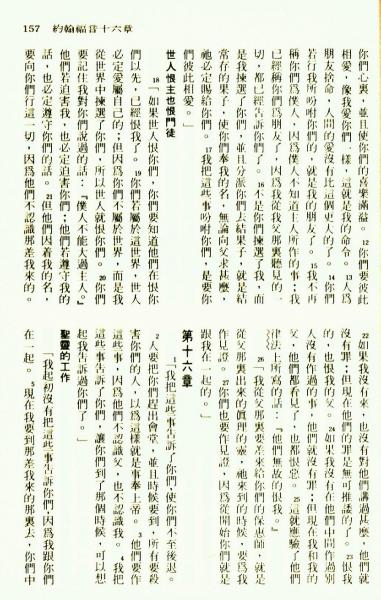 157 約翰福音十六章
你們心裏，並且使你們的喜樂滿溢。12你們要彼此
相愛，像我愛你們一樣，這就是我的命令。13人爲
朋友捨命，人間的愛沒有比這個更大的了。14你們
若行我所吩咐你們的，就是我的朋友了。15我不再
稱你們爲僕人，因爲僕人不知道主所作的事；我
已經稱你們爲朋友了，因爲我從我父那裏聽見的一
切，都已經告訴你們了。16不是你們揀選了我，而
是我揀選了你們，並且分派你們去結果子，就是結
常存的果子，使你們奉我的名，無論向父求甚麼，
祂必定賜給你們。17我把這些事吩咐你們，是要你
們彼此相愛。」
世人恨主也恨門徒
18「如果世人恨你們，你們要知道他們在恨你
們以先，已經恨我了。19你們若屬於這世界，世人
必定愛屬自己的；但因爲你們不屬於世界，而是我
從世界中揀選了你們，所以世人就恨你們。20你們
要記住我對你們說過的話：『僕人不能大過主人。』
他們若迫害我，也必定迫害你們；他們若遵守我的
話，也必定遵守你們的話。21但他們因着我的名，
要向你們行這一切，因爲他們不認識那差我來的。
22如果我沒有來，也沒有對他們講過甚麼，他們就
沒有罪；但現在他們的罪是無可推諉的了。23恨我
的，也恨我的父。24如果我沒有在他們中間作過別
人沒有作過的事，他們就沒有罪；但現在我和我的
父，他們都看見了，也都恨惡。25這就應驗了他們
律法上所寫的話：『他們無故的恨我。』
26「我從父那裏要差來給你們的保惠師，就是
從父那裏出來的眞理的靈，祂來到的時候，要爲我
作見證。27你們也要作見證，因爲從開始你們就是
跟我在一起的。」
第十六章
1「我把這些事告訴了你們，使你們不至後退。
2人要把你們趕出會堂，並且時候要到，所有要殺
害你們的人，以爲這樣就是事奉上帝。3他們要作
這些事，因爲他們不認識父，也不認識我。4我把
這些事告訴了你們，讓你們到了那個時候，可以想
起我告訴過你們了。」
聖靈的工作
「我起初沒有把這些事告訴你們，因爲我跟你們
在一起。5現在我要到那差我來的那裏去，你們中